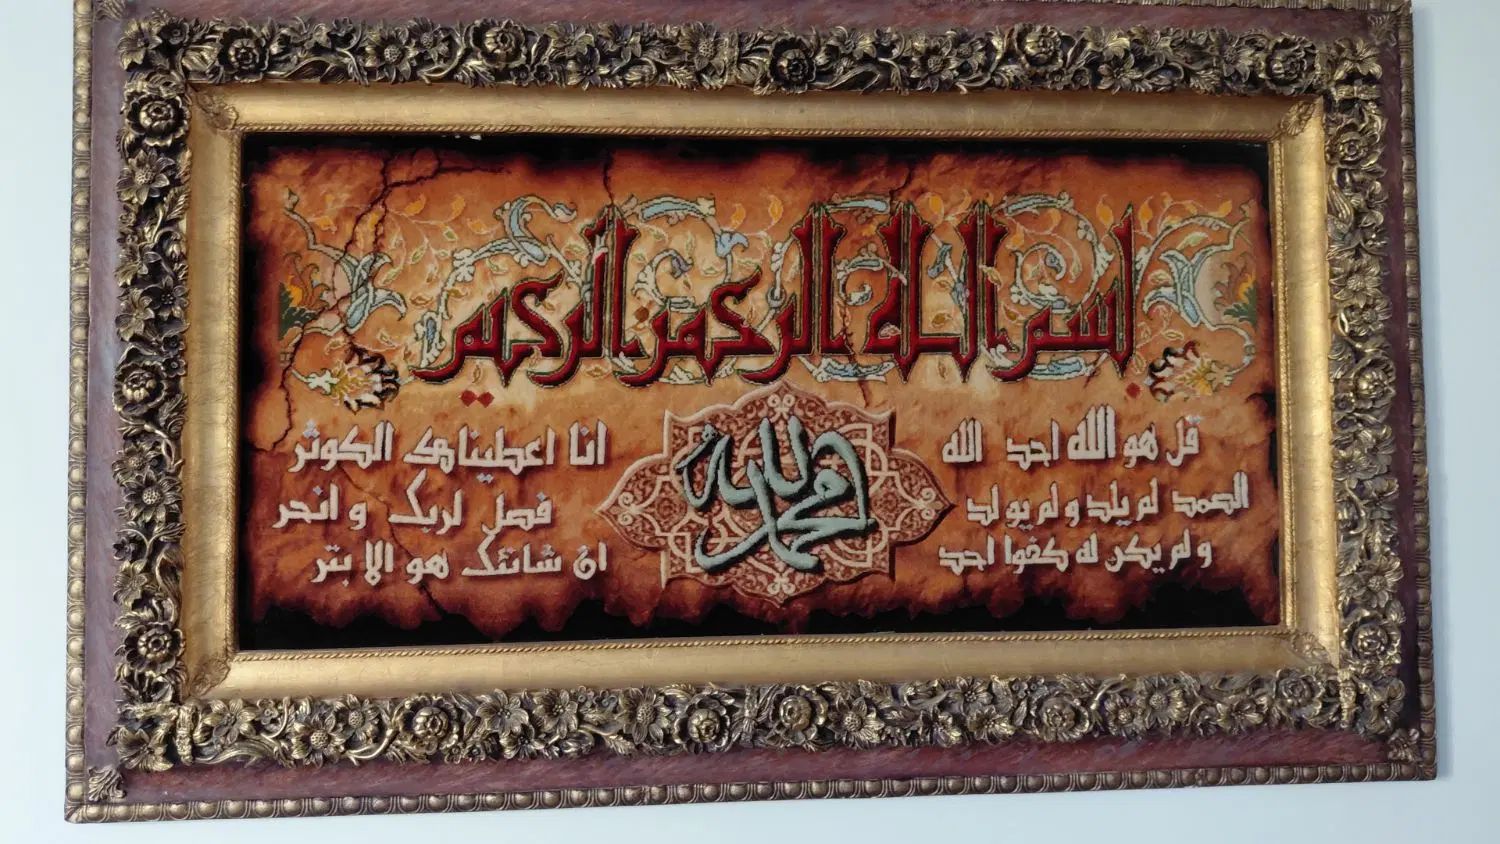 بسم الله الرحمن الرحيم
قل هو الله احد الله
الصمد لم يلد و لم يولد
و لم يكن له كفوا احد
الله
محمد
انا اعطيناك الكوثر
فصل لربك و انحر
ان شانئك هو الابتر